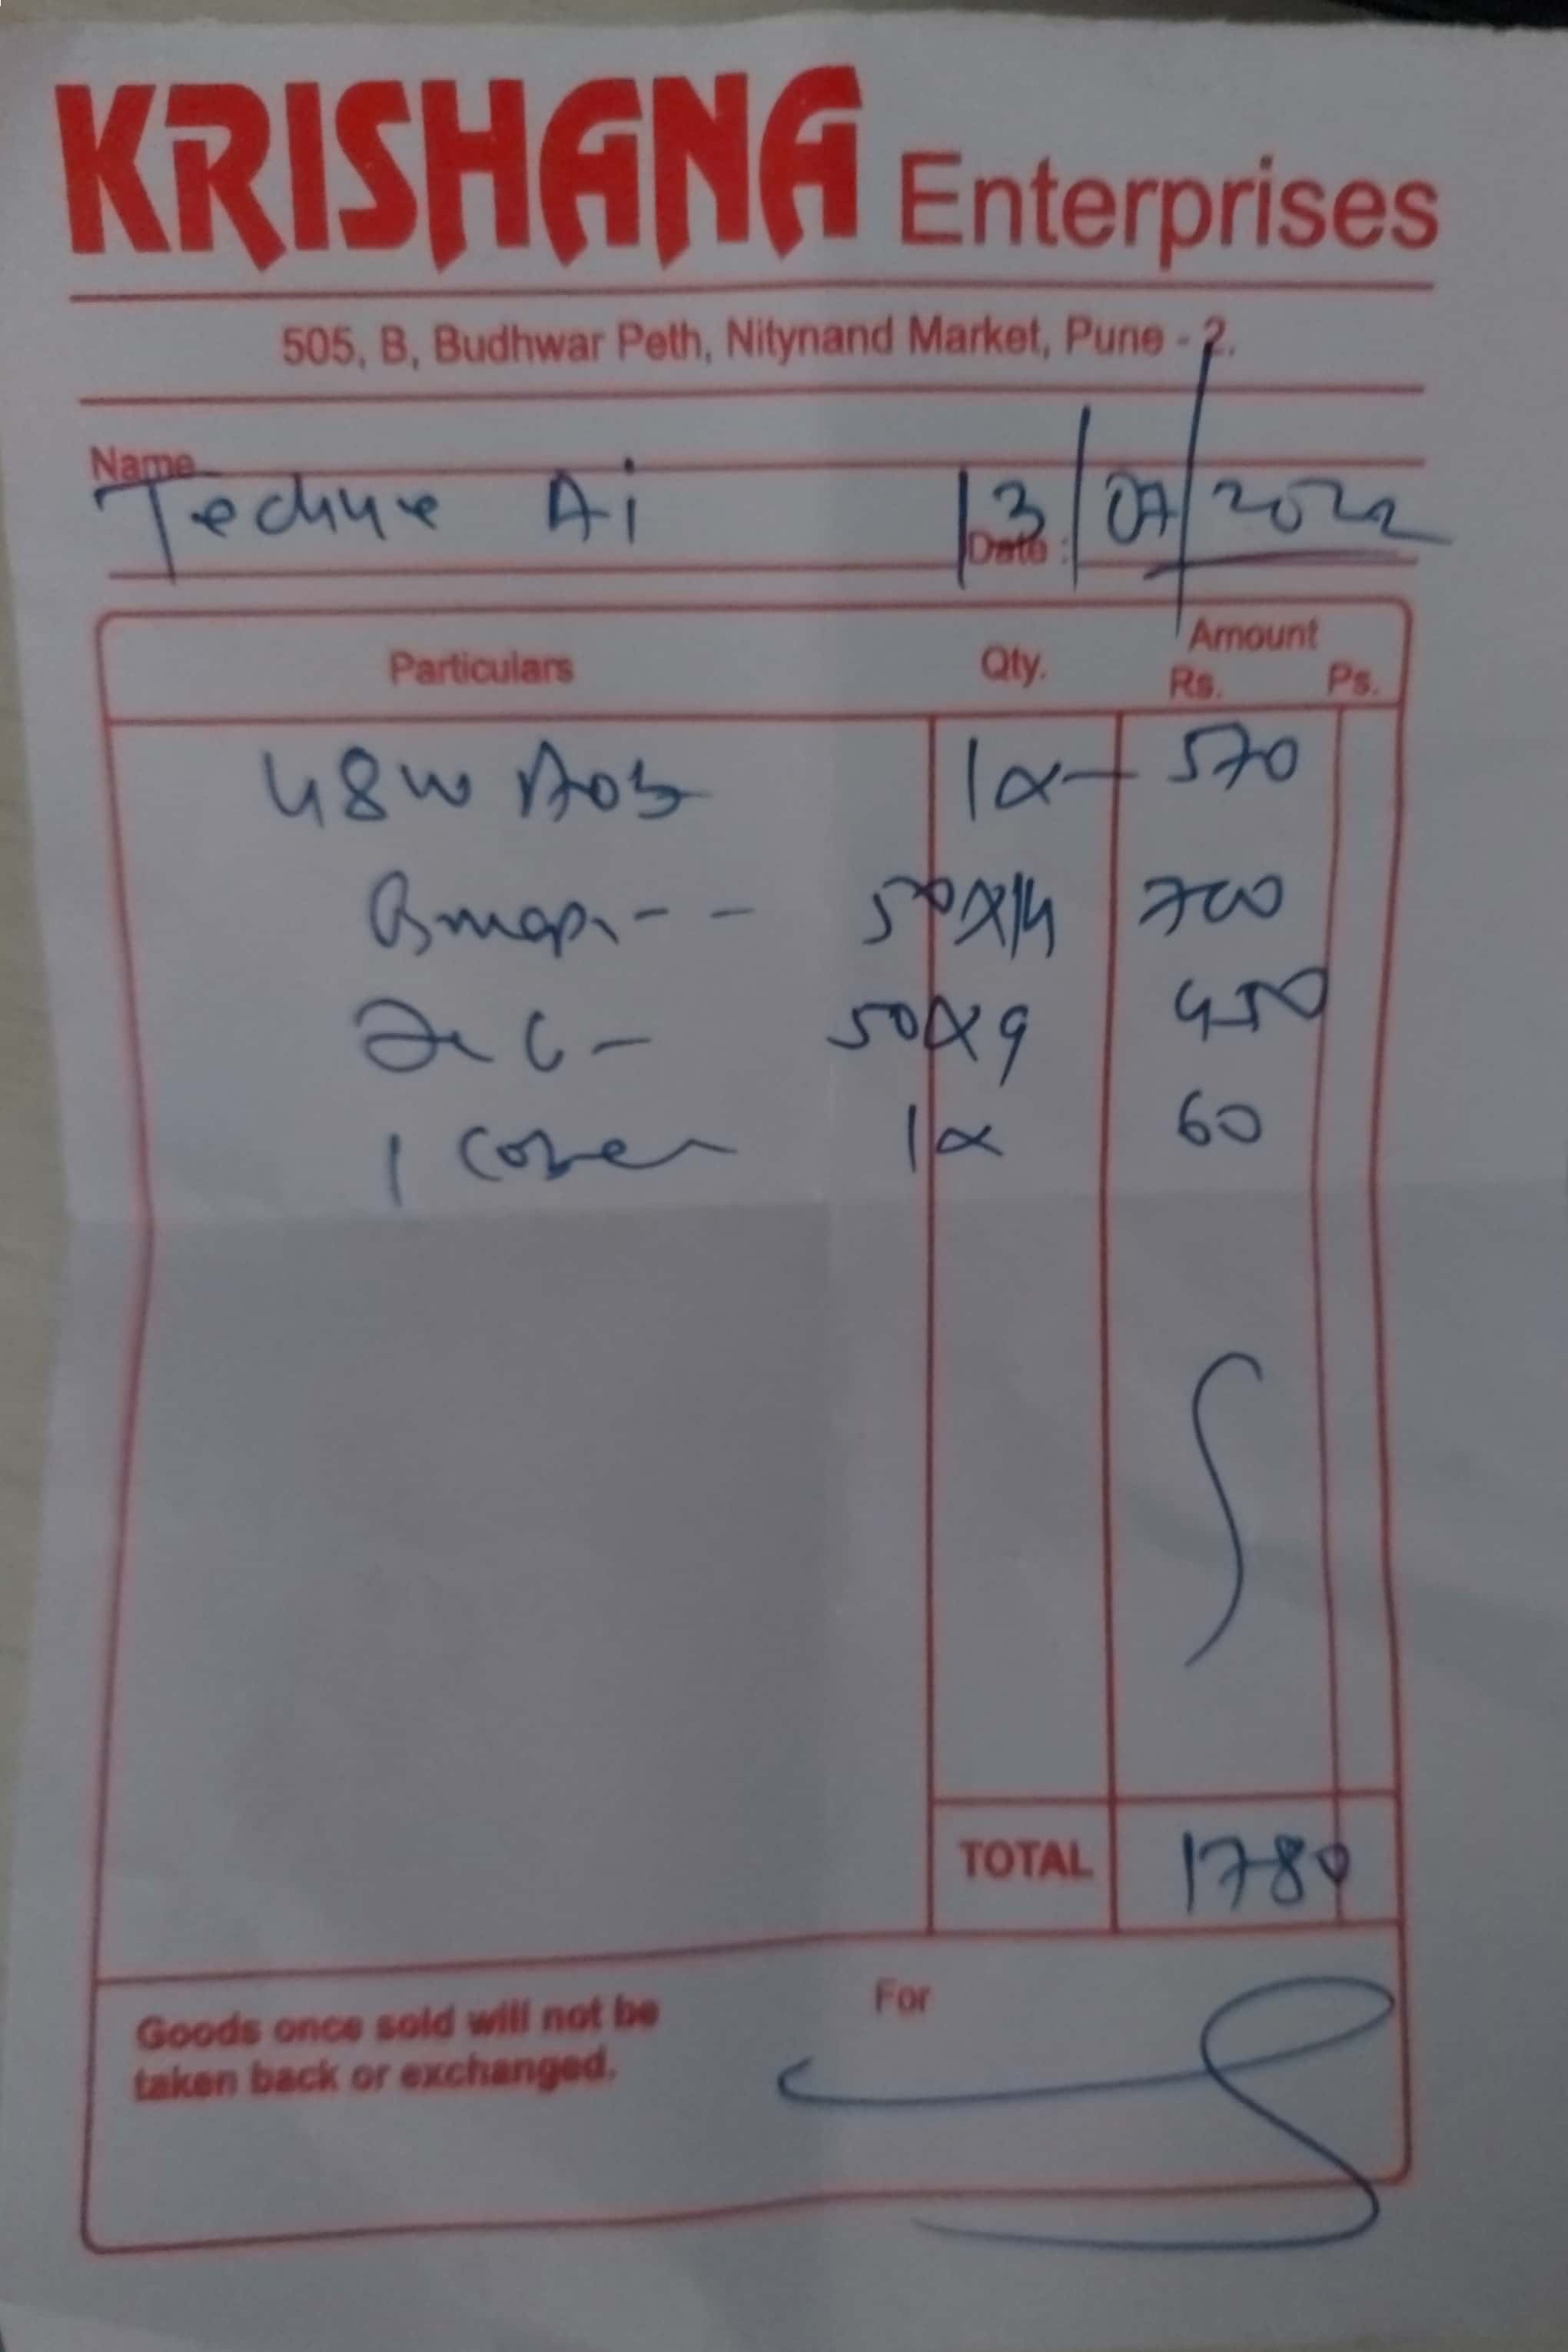 KRISHANA Enterprises
505, B, Budhwar Peth, Nitynand Market, Pune - 2.
Name
Ai 13/07/2022
Date :
Particulars Qty. Amount
Rs. Ps.
48w 1x 570
50x14 700
50x9 450
1 Cover 1x 60
TOTAL 1780
Goods once sold will not be
taken back or exchanged.
For